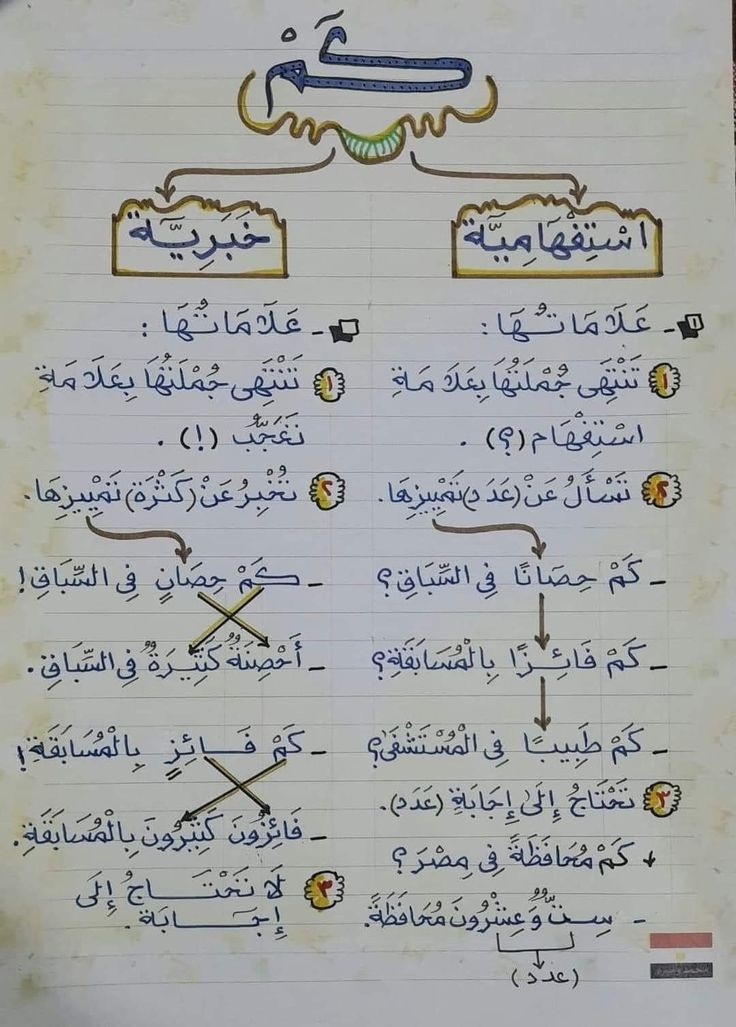 كَمْ
اسْتِفْهَامِيَّة
١ـ عَلَامَاتُهَا:
١ تَنْتَهِى جُمْلَتُهَا بِعَلَامَةِ
اسْتِفْهَام (؟).
٢ تَسْأَلُ عَنْ (عَدَدِ) تَمْيِيزِهَا.
ـ كَمْ حِصَانًا فِى السِّبَاقِ؟
ـ كَمْ فَائِزًا بِالْمُسَابَقَةِ؟
ـ كَمْ طَبِيبًا فِى الْمُسْتَشْفَى؟
٣ تَحْتَاجُ إِلَى إِجَابَةِ (عَدَد).
كَمْ مُحَافَظَةً فِى مِصْرَ؟
ـ سِتٌّ وَعِشْرُونَ مُحَافَظَةً.
(عدد)
خَبَرِيَّة
ـ عَلَامَاتُهَا:
١ تَنْتَهِى جُمْلَتُهَا بِعَلَامَةِ
تَعَجُّب (!).
٢ تُخْبِرُ عَنْ (كَثْرَةِ) تَمْيِيزِهَا.
ـ كَمْ حِصَانٍ فِى السِّبَاقِ!
ـ أَحْصِنَةٌ كَثِيرَةٌ فِى السِّبَاقِ.
ـ كَمْ فَائِزٍ بِالْمُسَابَقَةِ!
ـ فَائِزُونَ كَثِيرُونَ بِالْمُسَابَقَةِ.
٣ لَا تَحْتَاجُ إِلَى
إِجَابَة.